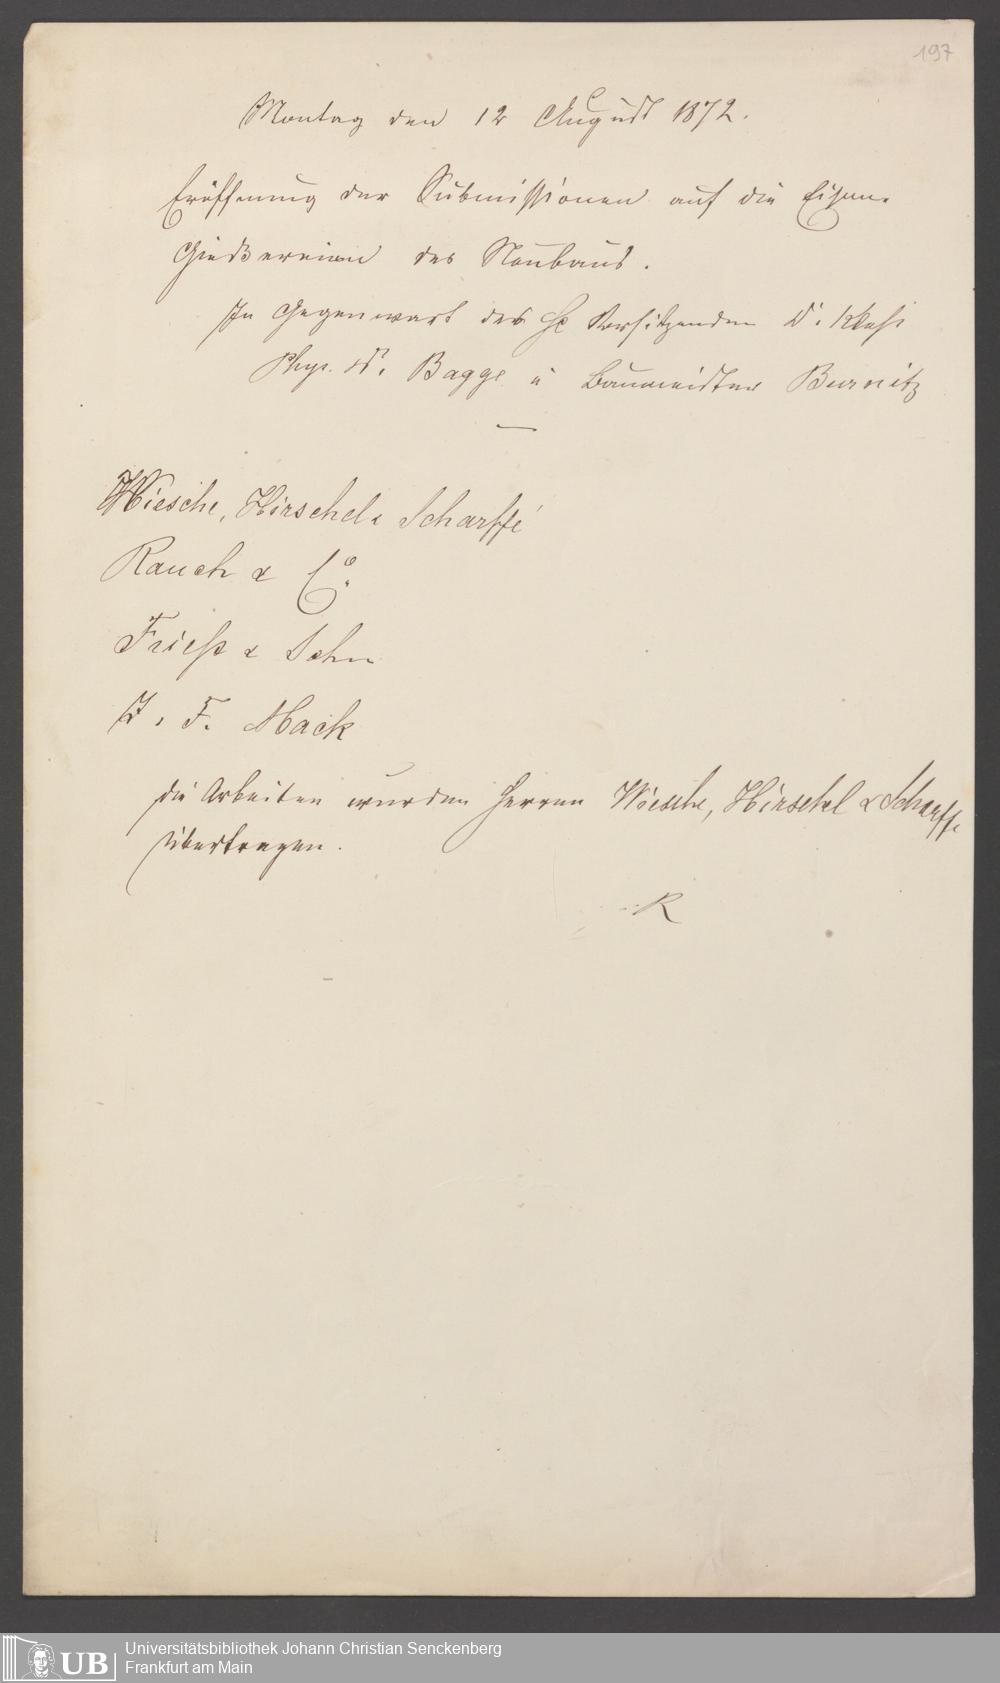 197
Montag den 12 August 1872.
Eröffnung der Submissionen auf die Eisen-
Gießereien des Neubaus.
In Gegenwart des H Vorsitzenden D.
Phys. D. Bagge u Baumeister Burnitz
Wiesche, Hirschel & Scharffe
Rauch & Co.
Frieß & Sohn
J. F. Mack
die Arbeiten wurden Herren Wiesche, Hirschel & Scharffe
übertragen.
R
UB
Universitätsbibliothek Johann Christian Senckenberg
Frankfurt am Main